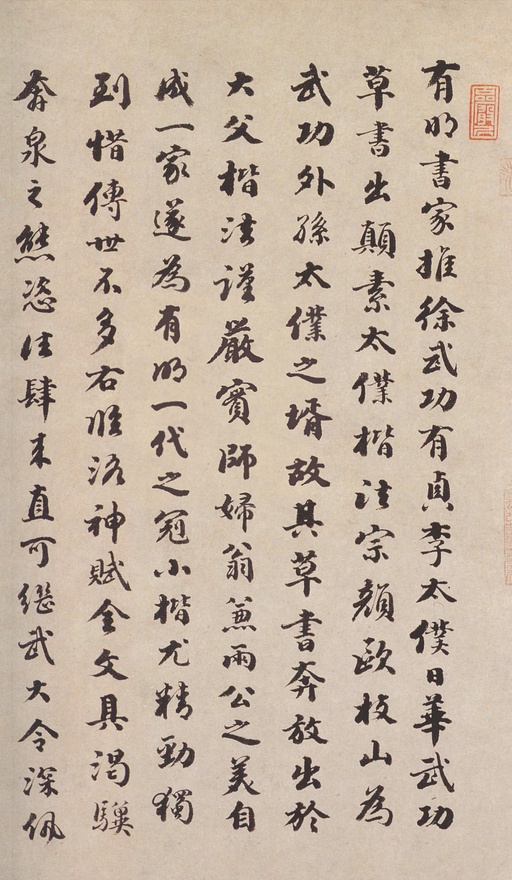 有明書家推徐武功有貞李太僕日華武功
草書出顛素太僕楷法宗顔歐枝山為
武功外孫太僕之壻故其草書奔放出於
大父楷法謹嚴實師婦翁蒹兩公之美自
成一家遂為有明一代之冠小楷尤精勁獨
到惜傳世不多右臨洛神賦全文具渴驥
奔泉之態恣往肆来直可繼武大令深佩